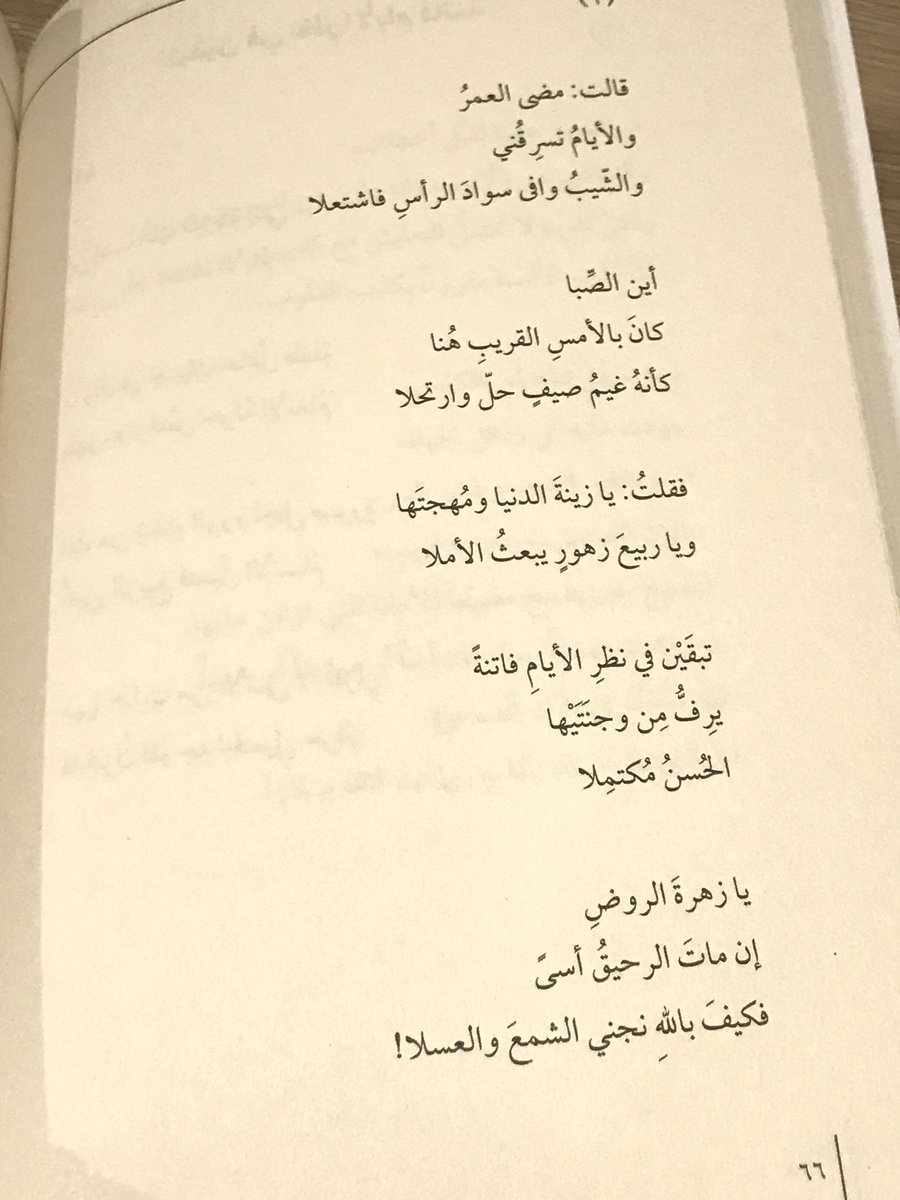 (١)
قالت: مضى العمرُ
والأيامُ تسرِقُني
والشّيبُ وافى سوادَ الرأسِ فاشتعلا
أين الصِّبا
كانَ بالأمسِ القريبِ هُنا
كأنهُ غيمُ صيفٍ حلّ وارتحلا
فقلتُ: يا زينةَ الدنيا ومُهجتَها
ويا ربيعَ زهورٍ يبعثُ الأملا
تبقَيْن في نظرِ الأيامِ فاتنةً
يرِفُّ مِن وجنَتَيْها
الحُسنُ مُكتمِلا
يا زهرةَ الروضِ
إن ماتَ الرحيقُ أسىً
فكيفَ باللهِ نجني الشمعَ والعسلا!
٦٦